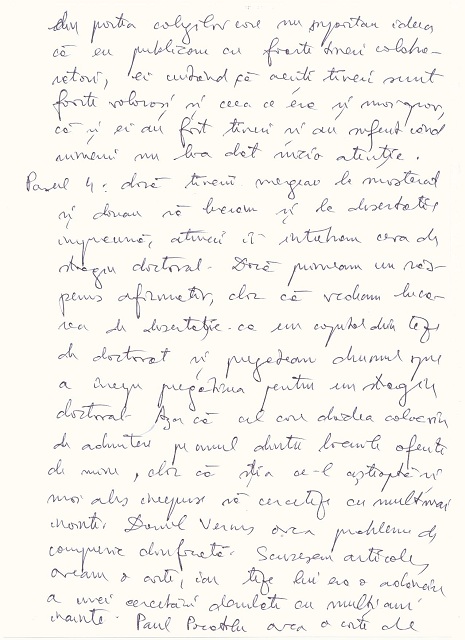 din partea colegilor care nu suportau ideea
că eu publicam cu foarte tineri colabo-
ratori, ei uitând că acești tineri sunt
foarte valoroși și ceea ce era și mai grav,
că și ei au fost tineri și au suferit când
nimeni nu le-a dat nicio atenție.
Pasul 4: dacă tinerii mergeau la masterat
și doreau să lucrăm și la disertație
împreună, atunci îi întrebam ceva de
stagiu doctoral. Dacă primeam un răs-
puns afirmativ, clar că vedeam lucra-
rea de disertație ca un capitol din teza
de doctorat și pregăteam drumul spre
a începe pregătirea pentru un stagiu
doctoral. Așa că cel care dădea colocviu
de admitere pe unul dintre locurile oferite
de mine, clar că știa ce-l așteaptă și
mai ales începuse să cerceteze cu mult mai
înainte. Daniel avea probleme de
comunicare din facultate. Scrisesem articole,
aveam o carte, iar teza lui era o
a unei cercetări demarate cu mulți ani
înainte. Paul avea o carte de